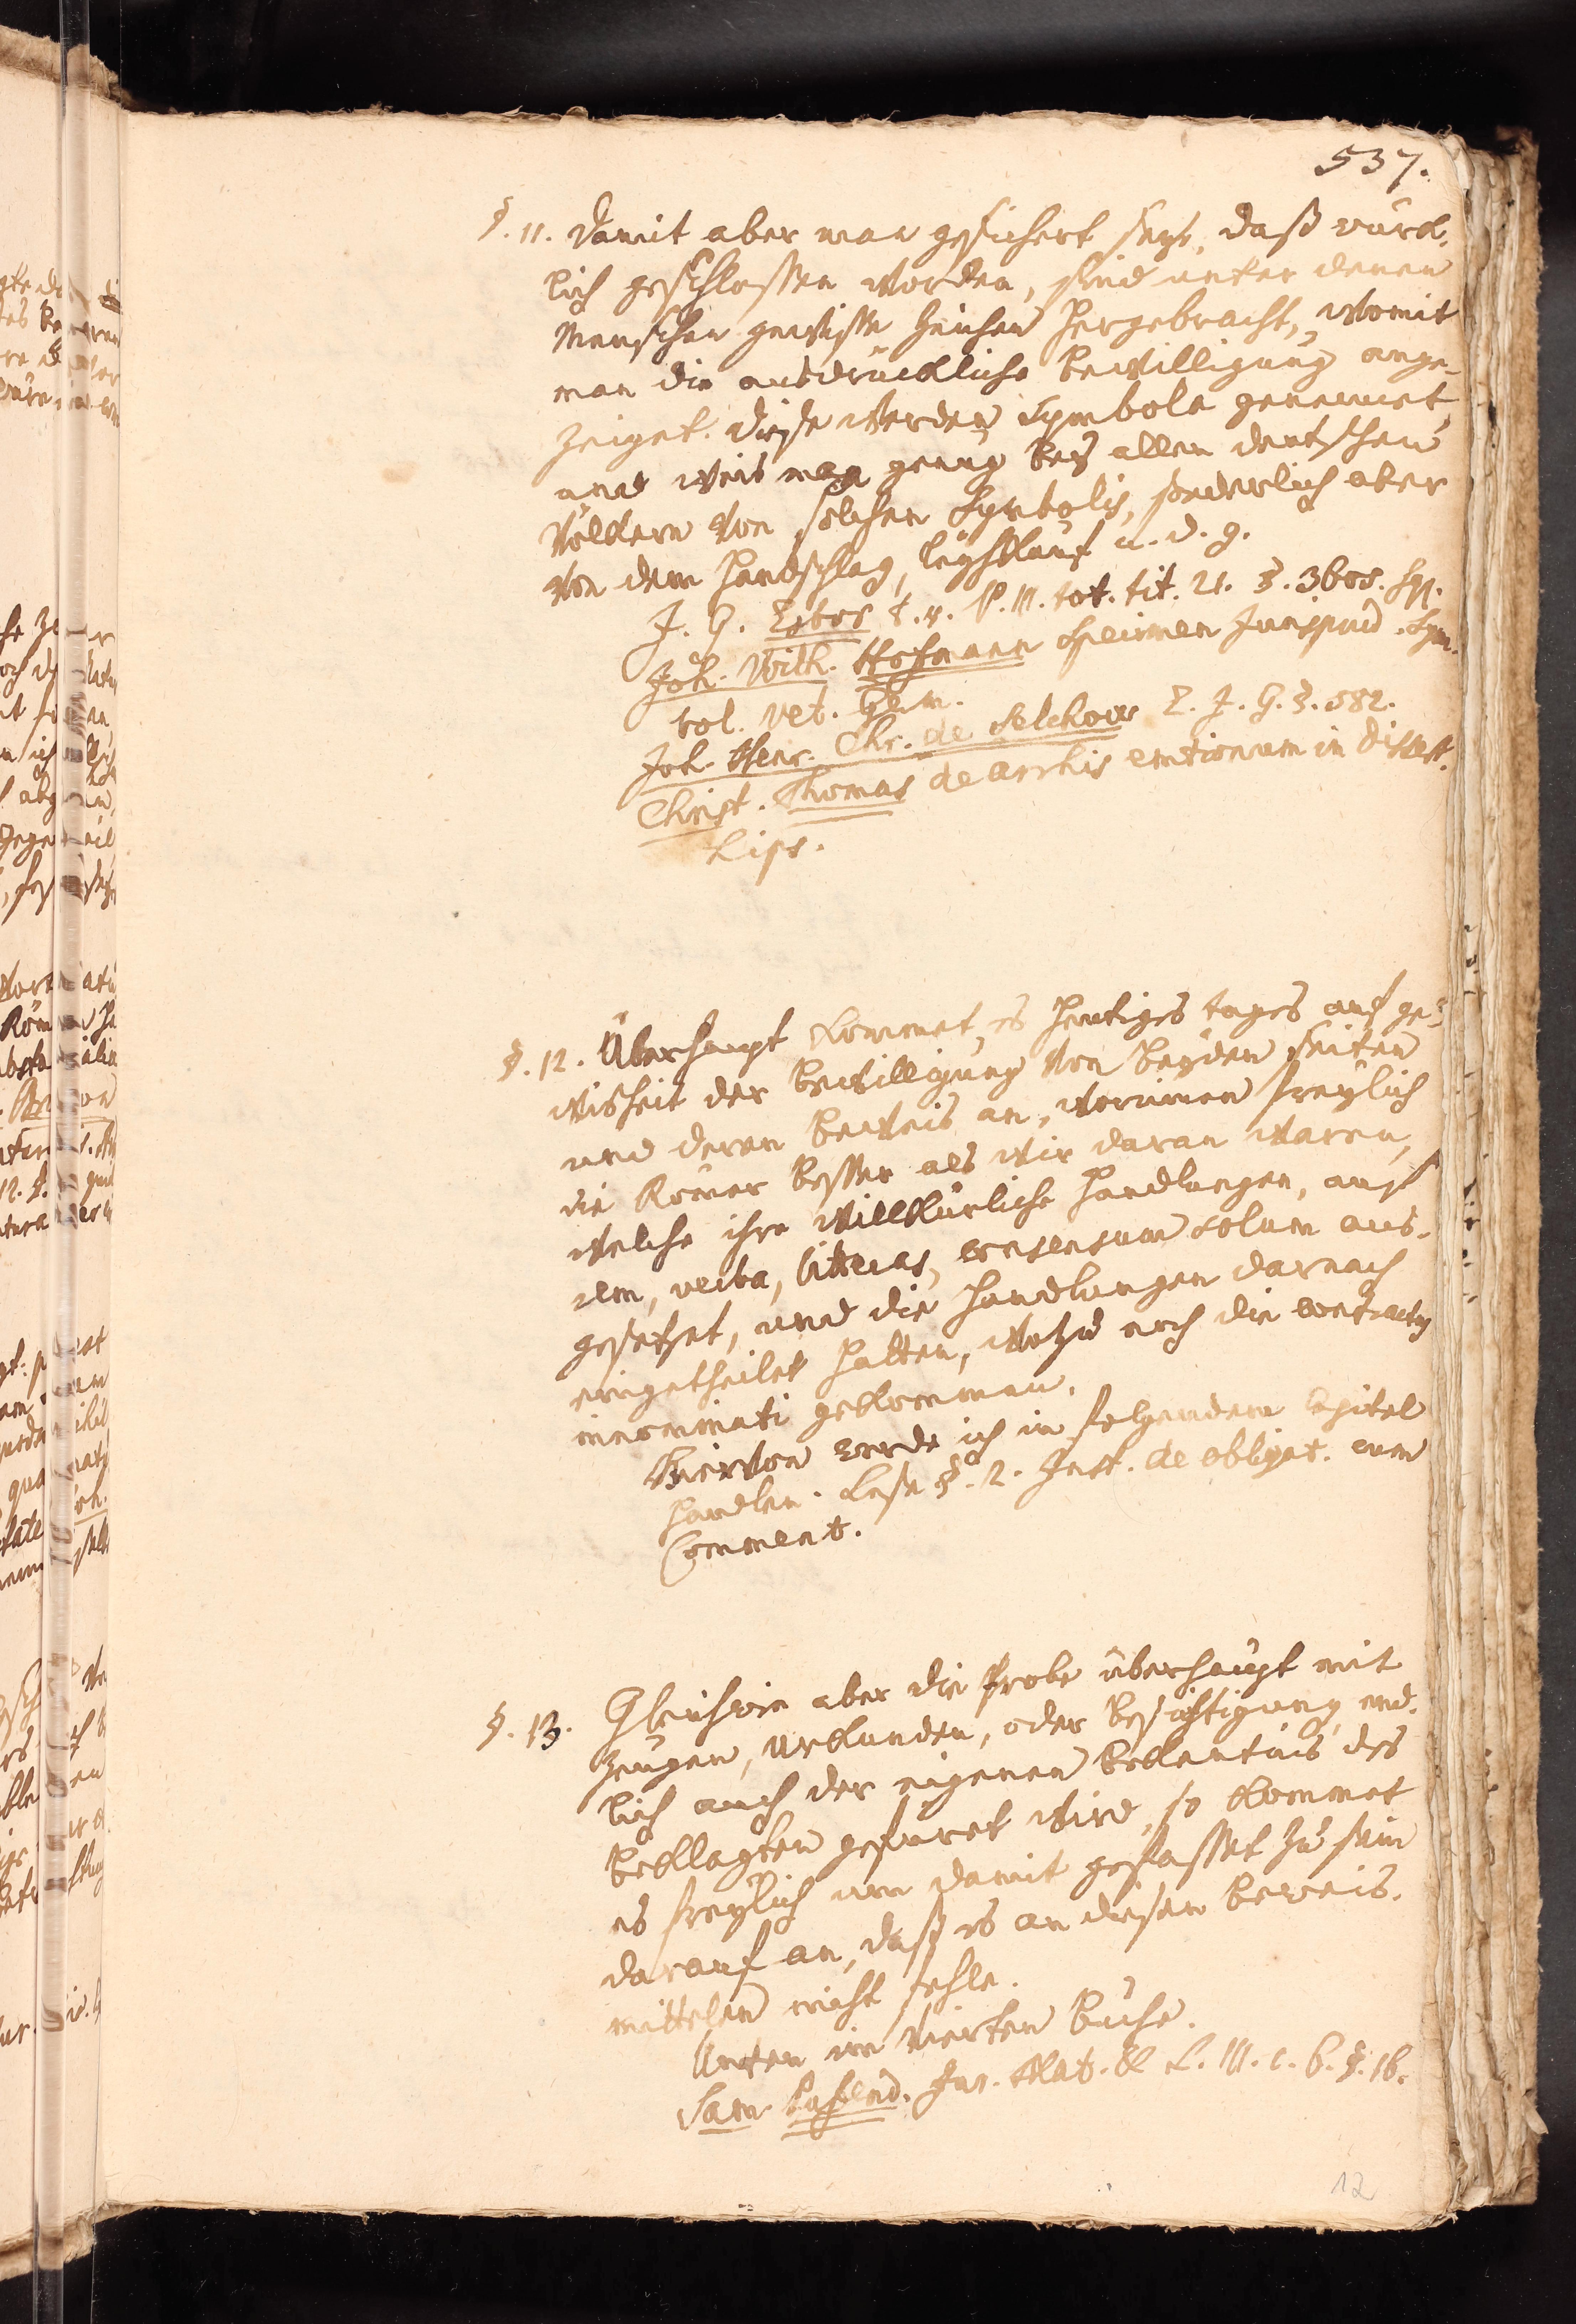 537.
§. 11. Damit aber man gesichert seye, daß würck-
lich geschlossen worden, sind unter denen
Menschen gewisse Zeichen hergebracht, womit
man die ausdrückliche Bewilligung ange-
zeiget. Diese werden Symbola genennet
und weis man genug bey allen deutschen
Völckern von solchen Symbolis, sonderlich aber
von dem Handschlag, u. d. g.
J. G. Estor P. III. tot. tit. 21. §.
Joh. Wilh. Hofmann Specimen Jurisprud. Sym-
bol. vet. Germ.
Joh. Henr. Chr. de Selchow E. J. G. §. 582.
Christ. Thomas de arrhis emtionum in Dissert.
Lips.
§. 12. Überhaupt kommet es heutiges tages auf ge-
wisheit der Bewilligung von beyden seiten
und deren Beweis an, worinnen freylich
die Römer besser als wir daran waren,
welche ihre willkürliche Handlungen, auf
rem, verba, litteras, consensum solum aus-
gesetzet, und die Handlungen darnach
eingetheilet hatten, wozu noch die contractus
innominati gekommen.
Hiervon werde ich in folgendem Capitel
handlen. Lese §. 2. Inst. de obligat. cum
Comment.
§. 13. Gleichwie aber die Probe überhaupt mit
Zeugen, Urkunden, oder Besichtigung, end-
lich auch der eigenen Bekentnis des
Beklagten gefüret wird, so kommet
es freylich um damit gefasset zu sein
darauf an, daß es an diesen Beweis-
mittelen nicht fehle.
Unten im vierten Buche.
Sam. Pufend. Jur. Nat. & L. III. c. 6. §. 16.
12